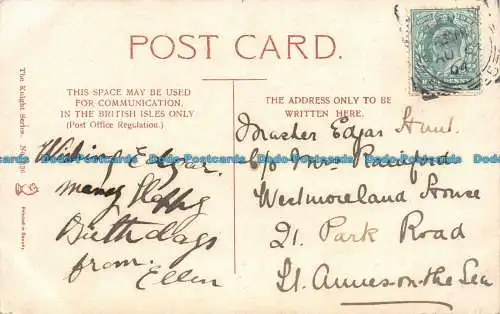 POST CARD.
THIS SPACE MAY BE USED
FOR COMMUNICATION,
IN THE BRITISH ISLES ONLY
(Post Office Regulation.)
THE ADDRESS ONLY TO BE
WRITTEN HERE.
The Knight Series. No.
Printed in Saxony
Wishing Edgar.
many Happy
Birthdays
from.
Ellen
Master Edgar Hunt.
c/o Mrs
Westmoreland House
21. Park Road
St. Annes-on-the Sea
Dodo Postcards Dodo Postcards Dodo Postcards Dodo Postcards Dodo Postcards